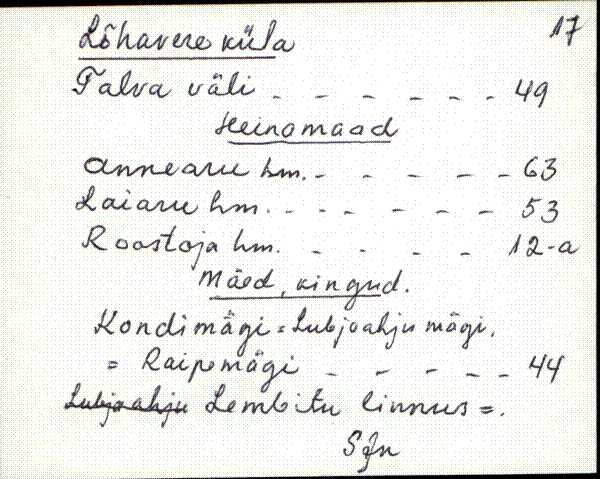 17
Lõhavere küla
Talva väli - - - - - - 49
Heinamaad
Annearu hm. - - - - - 63
Laiaru hm. - - - - - - 53
Roostoja hm. - - - - 12-a
Mäed, kingud.
Kondimägi = Lubjaahju mägi.
= Raipemägi - - - - - 44
Lubjaahju Lembitu linnus =.